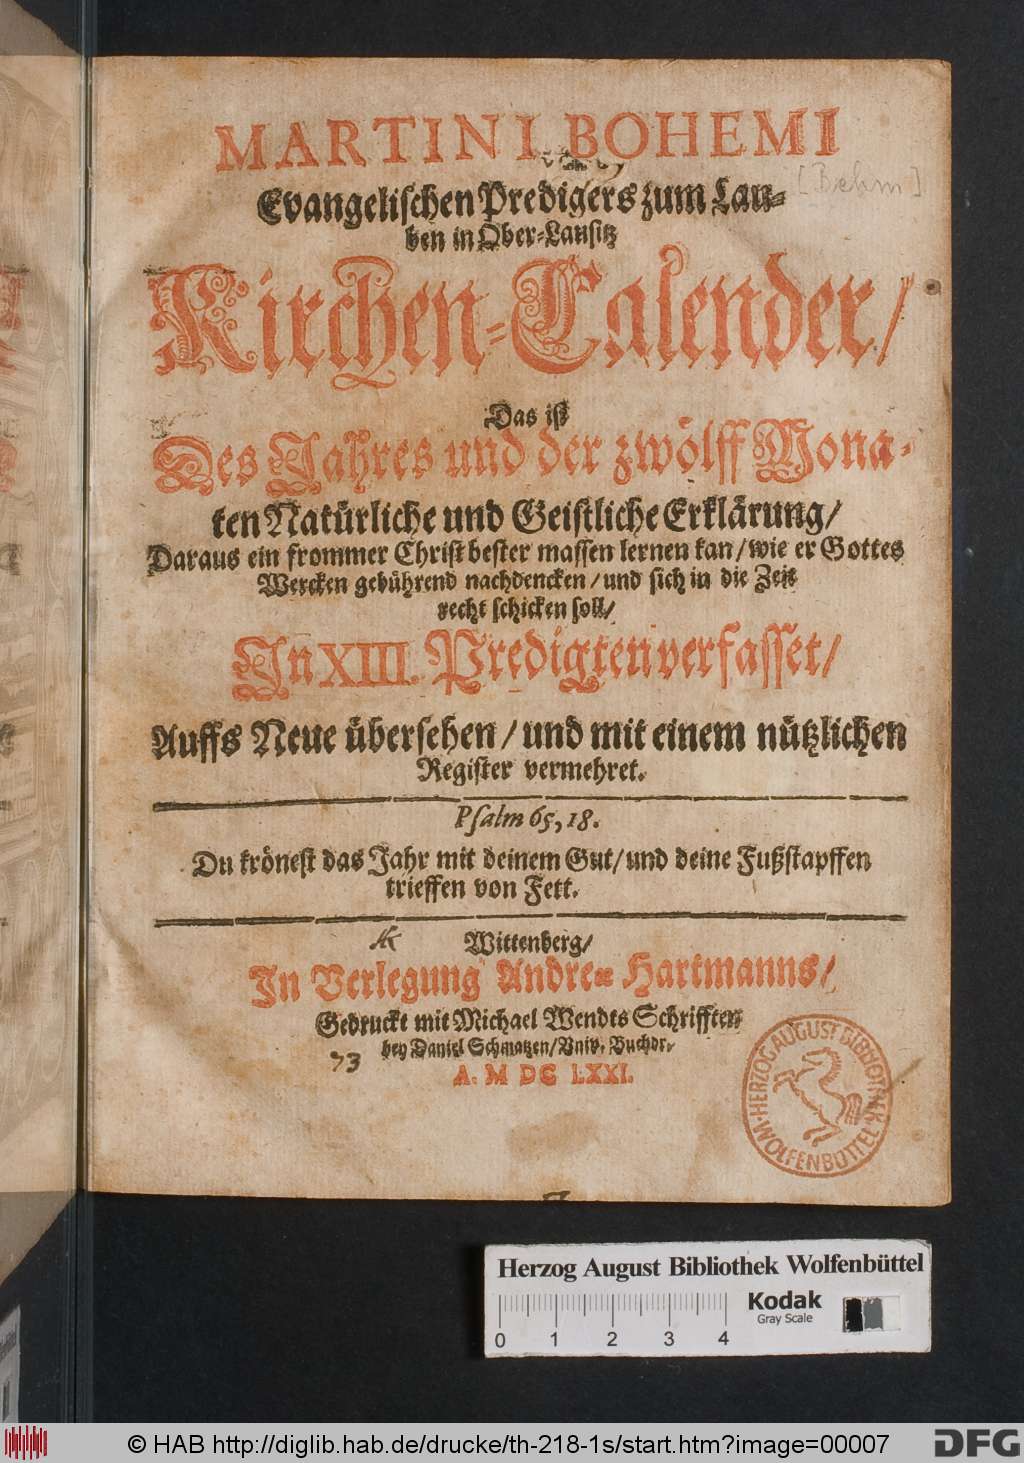 MARTINI BOHEMI
[Behm]
Evangelischen Predigers zum Lau-
ben in Ober-Lausitz
Kirchen-Calender/
Das ist
Des Jahres und der zwölff Mona-
ten Natürliche und Geistliche Erklärung/
Daraus ein frommer Christ bester massen lernen kan/wie er Gottes
Wercken gebührend nachdencken/und sich in die Zeit
recht schicken soll/
In XIII. Predigten verfasset/
Auffs Neue übersehen/und mit einem nützlichen
Register vermehret.
Psalm 65,18.
Du krönest das Jahr mit deinem Gut/und deine Fußstapffen
trieffen von Fett.
Wittenberg/
In Verlegung Andreæ Hartmanns/
Gedruckt mit Michael Wendts Schrifften
bey Daniel Schmatzen/Univ. Buchdr.
73
A. M DC LXXI.
HERZOG AUGUST BIBLIOTHEK
WOLFENBÜTTEL
Herzog August Bibliothek Wolfenbüttel
Kodak
Gray Scale
0 1 2 3 4
© HAB http://diglib.hab.de/drucke/th-218-1s/start.htm?image=00007
DFG